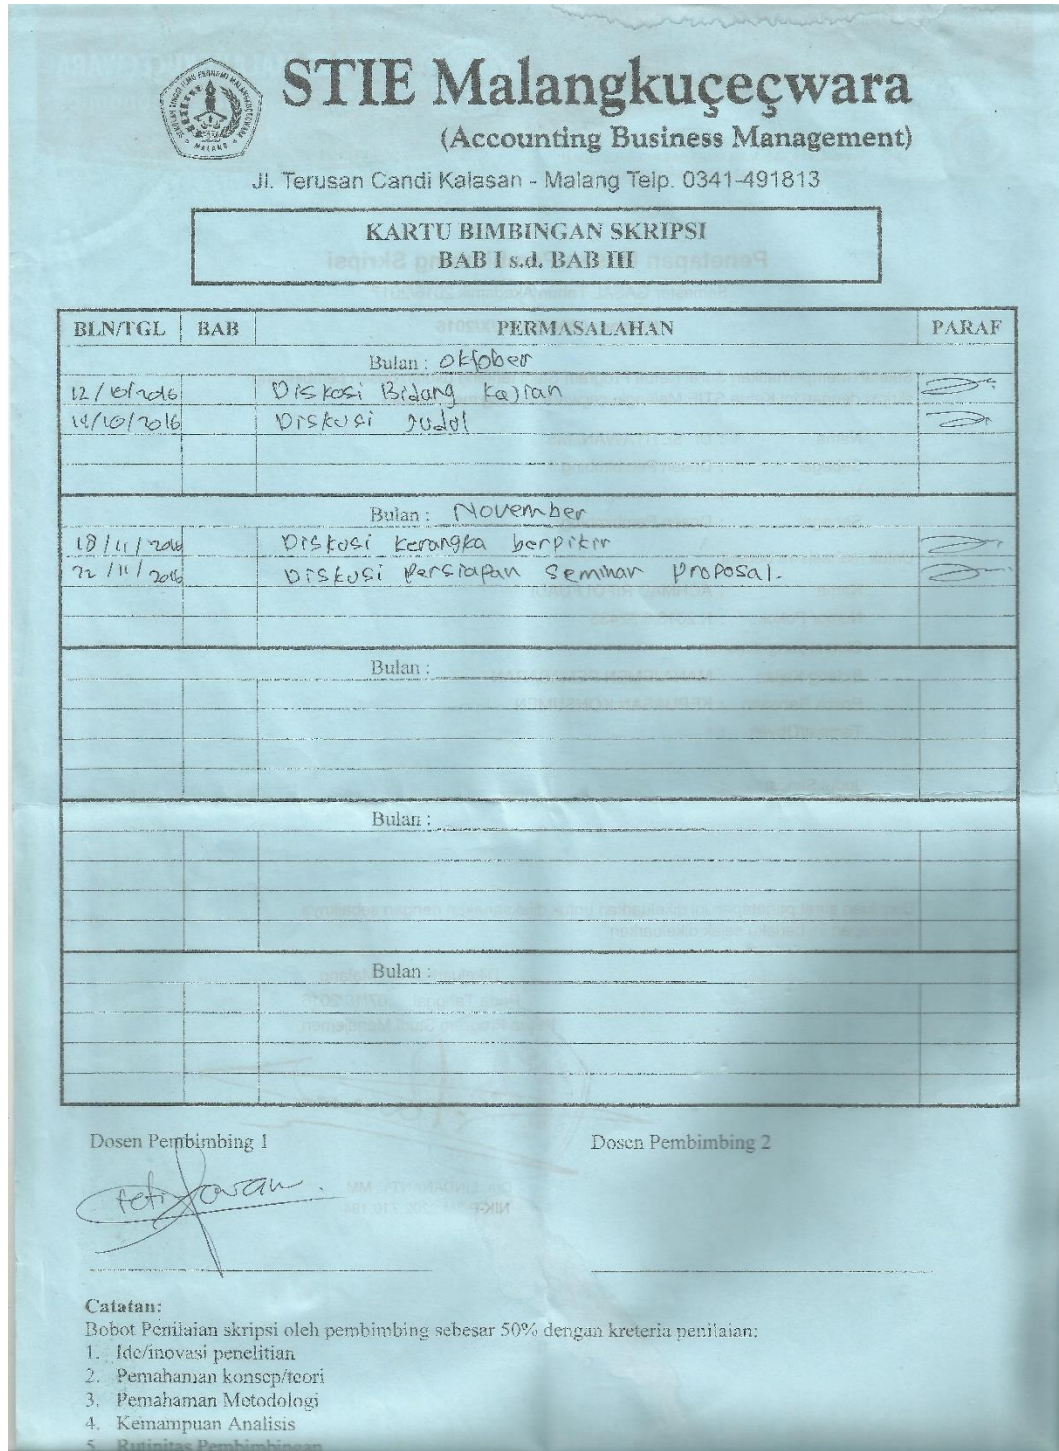 STIE Malangkuçeçwara
(Accounting Business Management)
Jl. Terusan Candi Kalasan - Malang Telp. 0341-491813
KARTU BIMBINGAN SKRIPSI
BAB I s.d. BAB III
BLN/TGL BAB PERMASALAHAN PARAF
Bulan : Oktober
12/10/2016 Diskusi Bidang Kajian
19/10/2016 Diskusi Judul
Bulan : November
18/11/2016 Diskusi Kerangka berpikir
22/11/2016 Diskusi Persiapan Seminar Proposal.
Bulan :
Bulan :
Bulan :
Dosen Pembimbing 1 Dosen Pembimbing 2
Catatan:
Bobot Penilaian skripsi oleh pembimbing sebesar 50% dengan kreteria penilaian:
1. Ide/inovasi penelitian
2. Pemahaman konsep/teori
3. Pemahaman Metodologi
4. Kemampuan Analisis
5. Rutinitas Pembimbingan